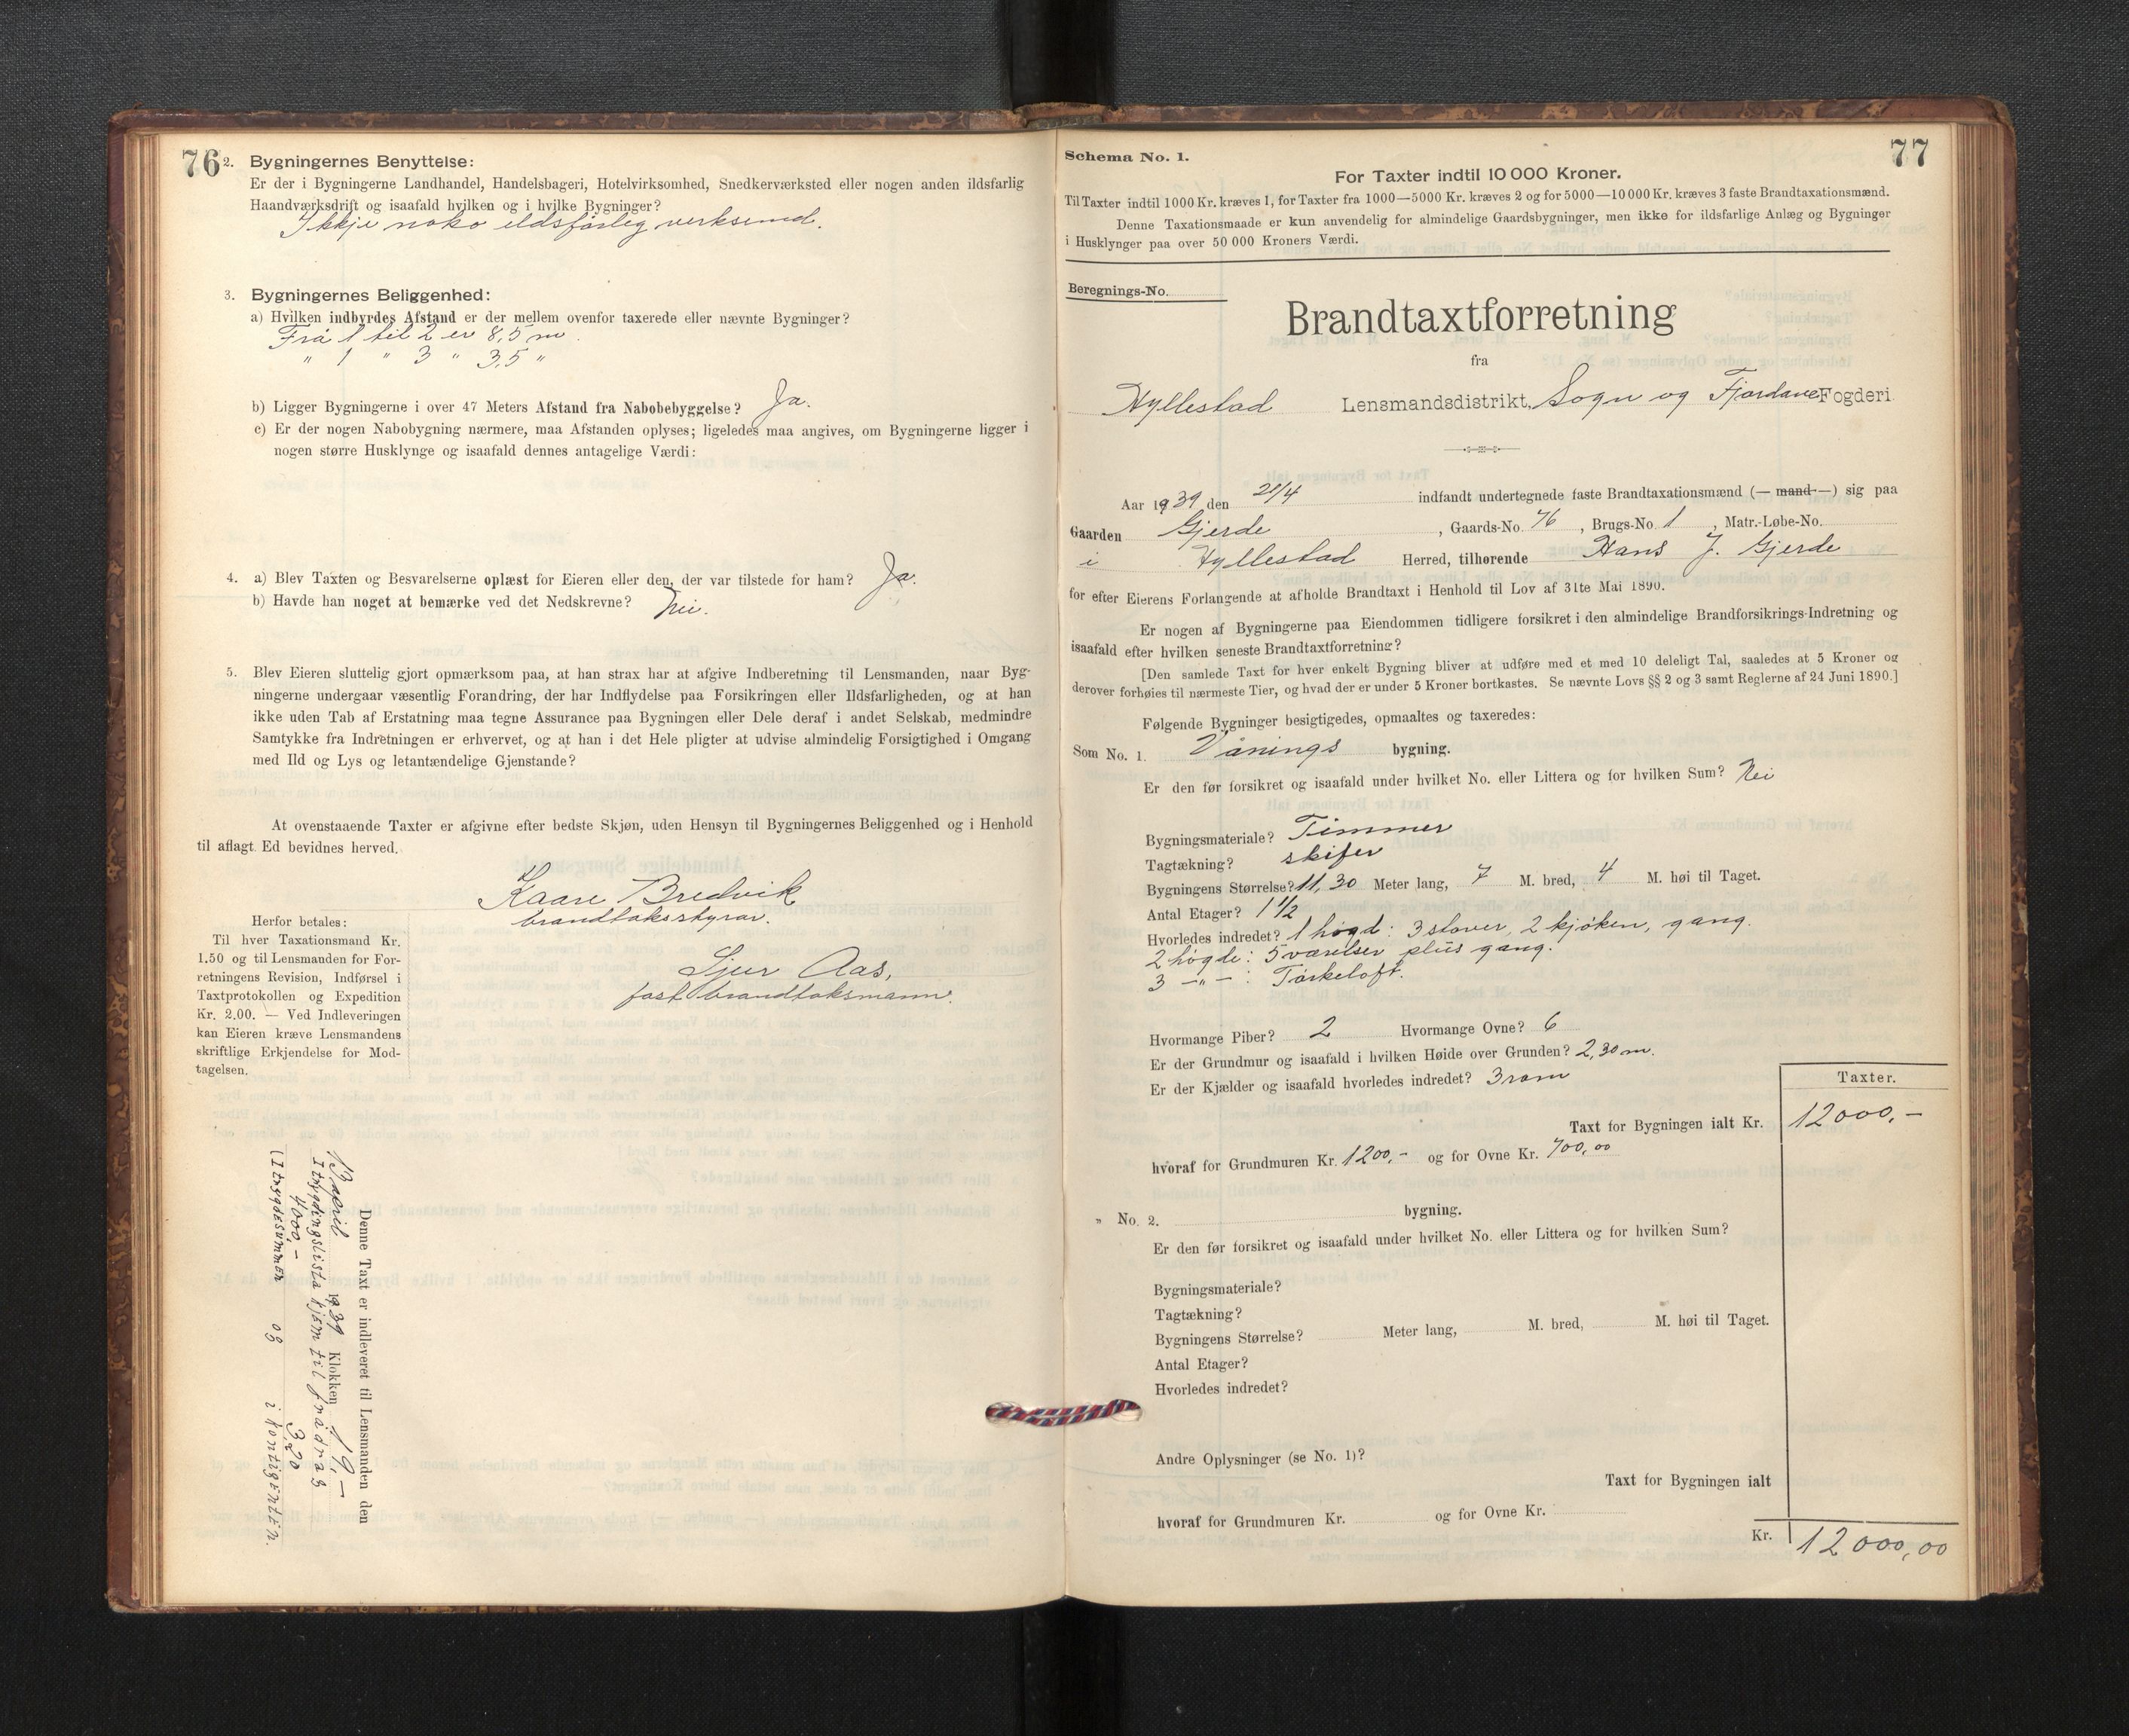 76
2. Bygningernes Benyttelse:
Er der i Bygningerne Landhandel, Handelsbageri, Hotelvirksomhed, Snedkerværksted eller nogen anden ildsfarlig
Haandværksdrift og isaafald hvilken og i hvilke Bygninger?
Ikkje noko eldsfårleg verksemd.
3. Bygningernes Beliggenhed:
a) Hvilken indbyrdes Afstand er der mellem ovenfor taxerede eller nævnte Bygninger?
Frå 1 til 2 er 8,5 m.
" 1 " 3 " 3,5 "
b) Ligger Bygningerne i over 47 Meters Afstand fra Nabobebyggelse? Ja.
c) Er der nogen Nabobygning nærmere, maa Afstanden oplyses; ligeledes maa angives, om Bygningerne ligger i
nogen større Husklynge og isaafald dennes antagelige Værdi:
4. a) Blev Taxten og Besvarelserne oplæst for Eieren eller den, der var tilstede for ham? Ja.
b) Havde han noget at bemærke ved det Nedskrevne? Nei.
5. Blev Eieren sluttelig gjort opmærksom paa, at han strax har at afgive Indberetning til Lensmanden, naar Byg-
ningerne undergaar væsentlig Forandring, der har Indflydelse paa Forsikringen eller Ildsfarligheden, og at han
ikke uden Tab af Erstatning maa tegne Assurance paa Bygningen eller Dele deraf i andet Selskab, medmindre
Samtykke fra Indretningen er erhvervet, og at han i det Hele pligter at udvise almindelig Forsigtighed i Omgang
med Ild og Lys og letantændelige Gjenstande?
At ovenstaaende Taxter er afgivne efter bedste Skjøn, uden Hensyn til Bygningernes Beliggenhed og i Henhold
til aflagt Ed bevidnes herved.
Kaare Bredvik
brandtakstyrar.
Sjur Aas,
fast brandtaksmann.
Herfor betales:
Til hver Taxationsmand Kr.
1.50 og til Lensmanden for For-
retningens Revision, Indførsel i
Taxtprotokollen og Expedition
Kr. 2.00. — Ved Indleveringen
kan Eieren kræve Lensmandens
skriftlige Erkjendelse for Mod-
tagelsen.
Denne Taxt er indleveret til Lensmanden den
13 april 1939 Klokken 19,-
I trygdingslista kjem til frådrag
4000,- 3,20
(I trygdesummen og i kontigenten.
77
Schema No. 1.
For Taxter indtil 10 000 Kroner.
Til Taxter indtil 1000 Kr. kræves 1, for Taxter fra 1000—5000 Kr. kræves 2 og for 5000—10 000 Kr. kræves 3 faste Brandtaxationsmænd.
Denne Taxationsmaade er kun anvendelig for almindelige Gaardsbygninger, men ikke for ildsfarlige Anlæg og Bygninger
i Husklynger paa over 50 000 Kroners Værdi.
Beregnings-No.
Brandtaxtforretning
fra
Hyllestad Lensmandsdistrikt, Sogn og Fjordane Fogderi
Aar 1939 den 21/4 indfandt undertegnede faste Brandtaxationsmænd (— mand —) sig paa
Gaarden Gjerde, Gaards-No. 76, Brugs-No. 1, Matr.-Løbe-No.
i Hyllestad Herred, tilhørende Hans J. Gjerde
for efter Eierens Forlangende at afholde Brandtaxt i Henhold til Lov af 31te Mai 1890.
Er nogen af Bygningerne paa Eiendommen tidligere forsikret i den almindelige Brandforsikrings-Indretning og
isaafald efter hvilken seneste Brandtaxtforretning?
[Den samlede Taxt for hver enkelt Bygning bliver at udføre med et med 10 deleligt Tal, saaledes at 5 Kroner og
derover forhøies til nærmeste Tier, og hvad der er under 5 Kroner bortkastes. Se nævnte Lovs §§ 2 og 3 samt Reglerne af 24 Juni 1890.]
Følgende Bygninger besigtigedes, opmaaltes og taxeredes:
Som No. 1. Vånings bygning.
Er den før forsikret og isaafald under hvilket No. eller Littera og for hvilken Sum? Nei
Bygningsmateriale? Timmer
Tagtækning? skifer
Bygningens Størrelse? 11,30 Meter lang, 7 M. bred, 4 M. høi til Taget.
Antal Etager? 1 1/2
Hvorledes indredet? 1 høgd: 3 stover, 2 kjøken, gang.
2 høgde: 5 værelser plus gang.
3 —"— : Tørkeloft.
Hvormange Piber? 2 Hvormange Ovne? 6
Er der Grundmur og isaafald i hvilken Høide over Grunden? 2,30 m.
Er der Kjælder og isaafald hvorledes indredet? 3 rom
Taxter.
Taxt for Bygningen ialt Kr. 12000,-
hvoraf for Grundmuren Kr. 1200,- og for Ovne Kr. 700,00
" No. 2. bygning.
Er den før forsikret og isaafald under hvilket No. eller Littera og for hvilken Sum?
Bygningsmateriale?
Tagtækning?
Bygningens Størrelse? Meter lang, M. bred, M. høi til Taget.
Antal Etager?
Hvorledes indredet?
Andre Oplysninger (se No. 1)?
Taxt for Bygningen ialt
hvoraf for Grundmuren Kr. og for Ovne Kr.
Kr. 12000,00